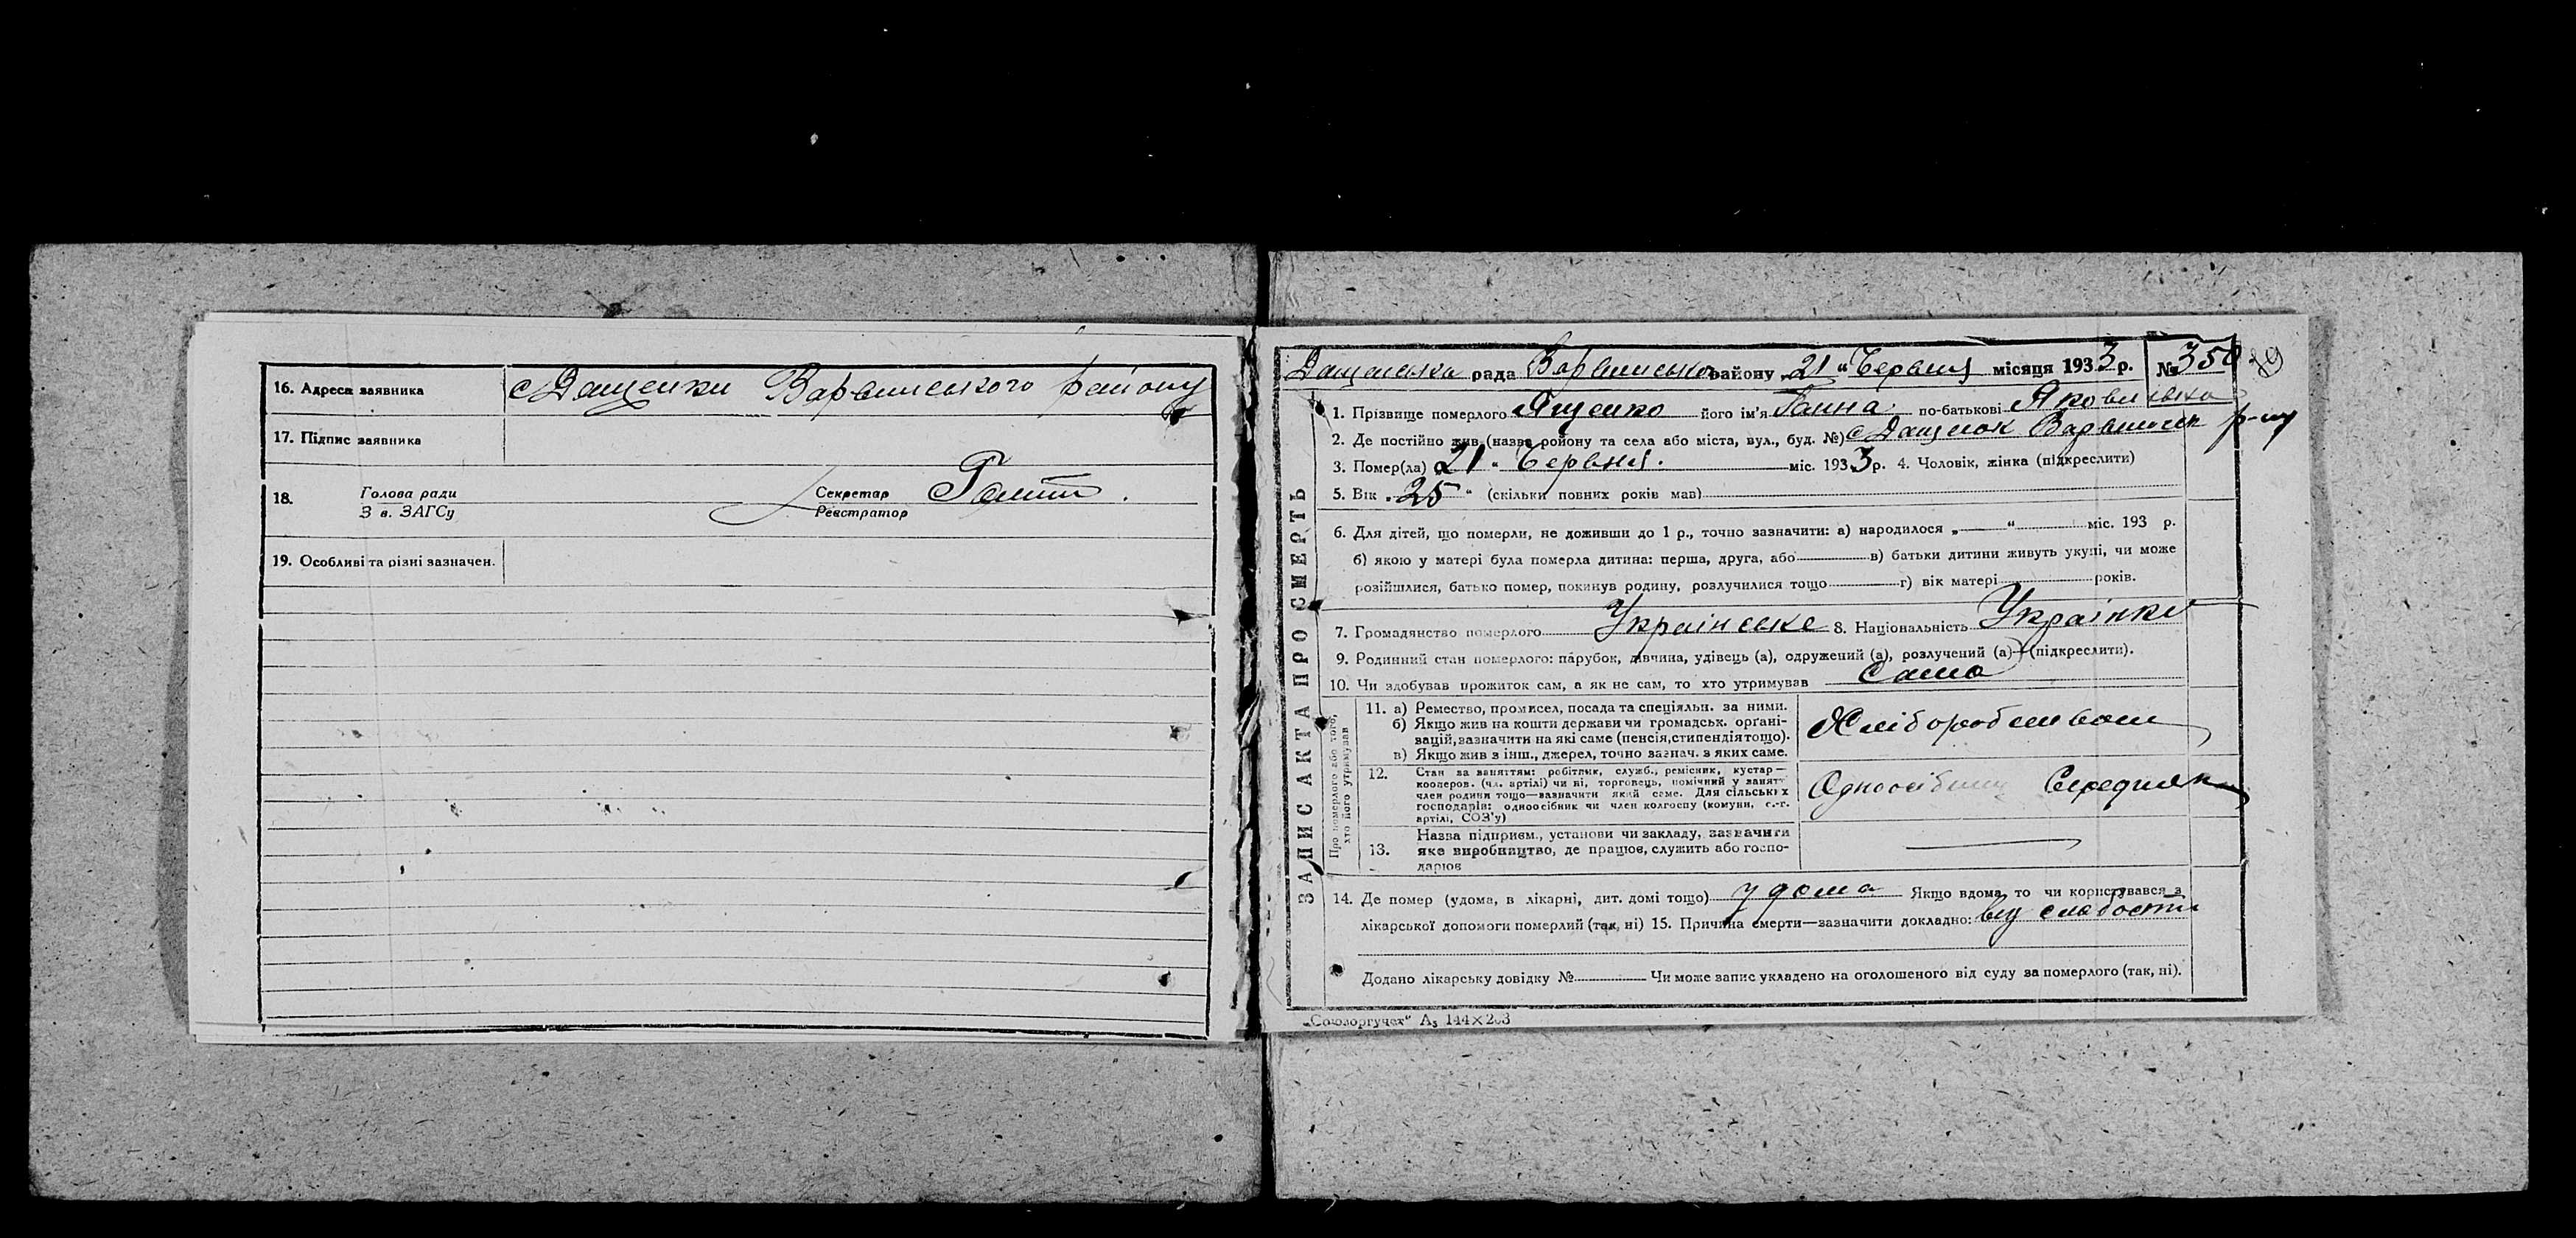 16. Адреса заявника с Дащенки Варвинського району
17. Підпис заявника
18. Голова ради Секретар
З в. ЗАГСу Реєстратор
19. Особливі та різні зазначен.
ЗАПИС АКТА ПРО СМЕРТЬ
Дащенська рада Варвинського району „21“ Червня місяця 1933 р. № 350
1. Прізвище померлого Ященко його ім'я Ганна по-батькові Яковлівна
2. Де постійно жив (назва ройону та села або міста, вул., буд. №) с Дащенок Варвинськ р-ну
3. Помер(ла) „21“ Червня. міс. 1933 р. 4. Чоловік, жінка (підкреслити)
5. Вік „25“ (скільки повних років мав)
6. Для дітей, що померли, не доживши до 1 р., точно зазначити: а) народилося „ “ міс. 193 р.
б) якою у матері була померла дитина: перша, друга, або в) батьки дитини живуть укупі, чи може
розійшлися, батько помер, покинув родину, розлучилися тощо г) вік матері років.
7. Громадянство померлого Українське 8. Національність Українка
9. Родинний стан померлого: парубок, дівчина, удівець (а), одружений (а), розлучений (а) (підкреслити).
10. Чи здобував прожиток сам, а як не сам, то хто утримував Сама
Про померлого або того, хто його утримував
11. а) Ремество, промисел, посада та спеціяльн. за ними.
б) Якщо жив на кошти держави чи громадськ. органі-
зацій, зазначити на які саме (пенсія, стипендія тощо).
в) Якщо жив з інш., джерел, точно зазнач. з яких саме.
12. Стан за заняттям: робітник, служб., ремісник, кустар—
кооперов. (чл. артілі) чи ні, торговець, помічний у занятт
член родини тощо—зазначити який саме. Для сільських
господарів: одноосібник чи член колгоспу (комуни, с.-г.
артілі, СОЗ'у)
Одноосібниц Середняк
13. Назва підприєм., установи чи закладу, зазначити
яке виробництво, де працює, служить або госпо-
дарює
14. Де помер (удома, в лікарні, дит. домі тощо) у дома Якщо вдома, то чи користувався з
лікарської допомоги померлий (так, ні) 15. Причина смерти—зазначити докладно: від слабости
Додано лікарську довідку № Чи може запис укладено на оголошеного від суду за померлого (так, ні).
„Союзоргучет“ А₃ 144×203